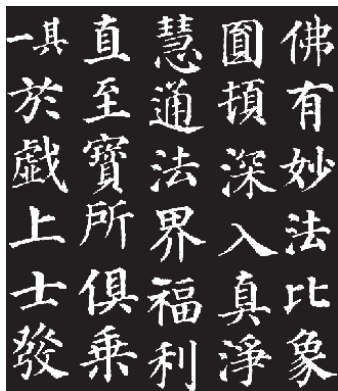 佛有妙法比象
圓頓深入真淨
慧通法界福利
直至寶所俱乘
其一於戲上士發